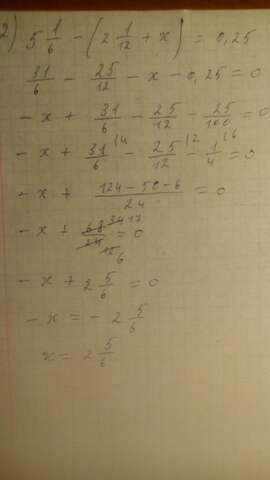 2) 5 1/6 - (2 1/12 + x) = 0,25
31/6 - 25/12 - x - 0,25 = 0
- x + 31/6 - 25/12 - 25/100 = 0
- x + 31/6 (4 - 25/12 (2 - 1/4 (6 = 0
- x + (124-50-6)/24 = 0
- x + 68/24 34 17 / 12 6 = 0
- x + 2 5/6 = 0
- x = - 2 5/6
x = 2 5/6